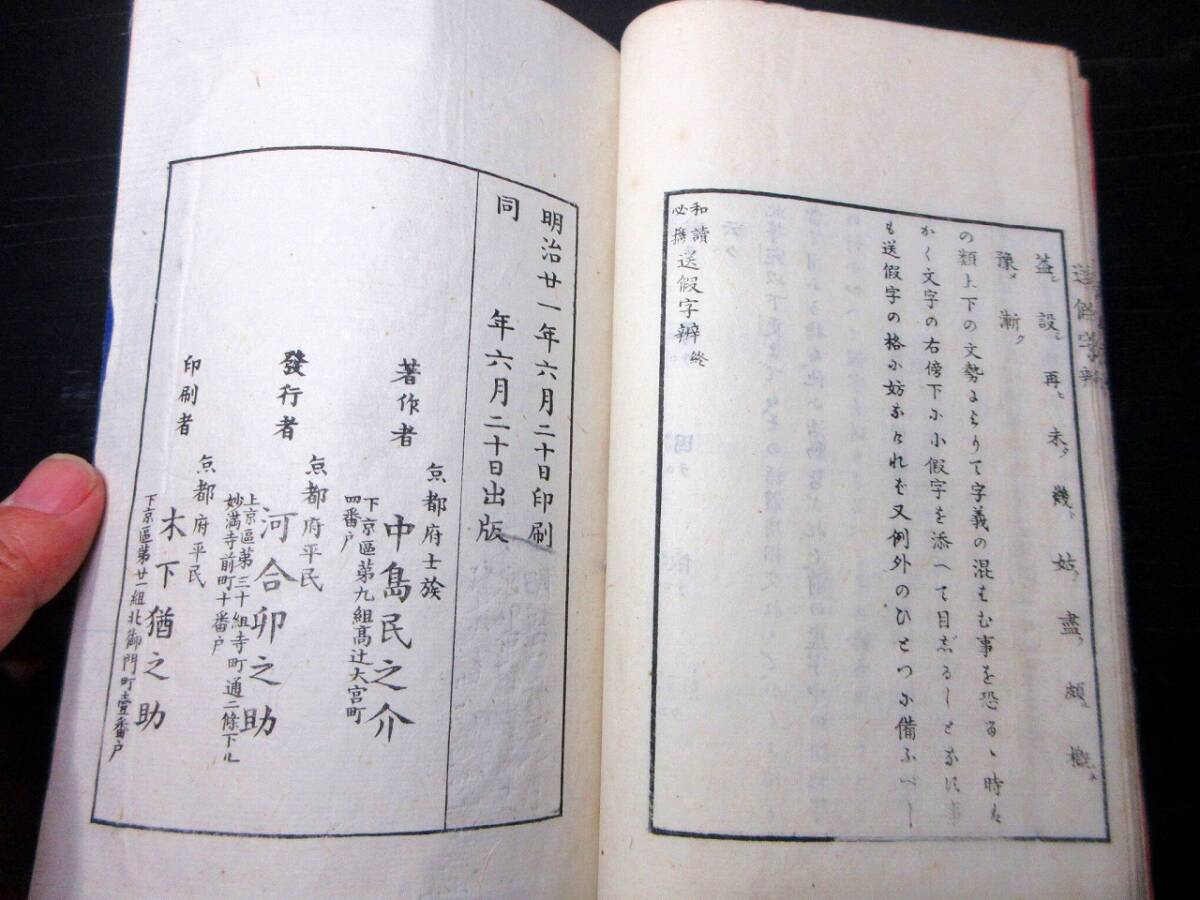 送假字辨
蓋ヒ設ヒ再ヒ未タ幾ト姑ク盡ク頗ル概ネ
豫メ漸ク
の類上下の文勢によりて字義の混せむ事を恐るゝ時は
かく文字の右傍下に小假字を添へて目じるしとなす事
も送假字の格に妨なけれは又例外のひとつに備ふべし
和讀必携 送假字辨 終
明治廿一年六月二十日印刷
同 年六月二十日出版
著作者
京都府士族
中島民之介
下京區第九組高辻大宮町
四番戸
發行者
京都府平民
河合卯之助
上京區第三十組寺町通二條下ル
妙滿寺前町十番戸
印刷者
京都府平民
木下猶之助
下京區第廿一組北御門町壹番戸